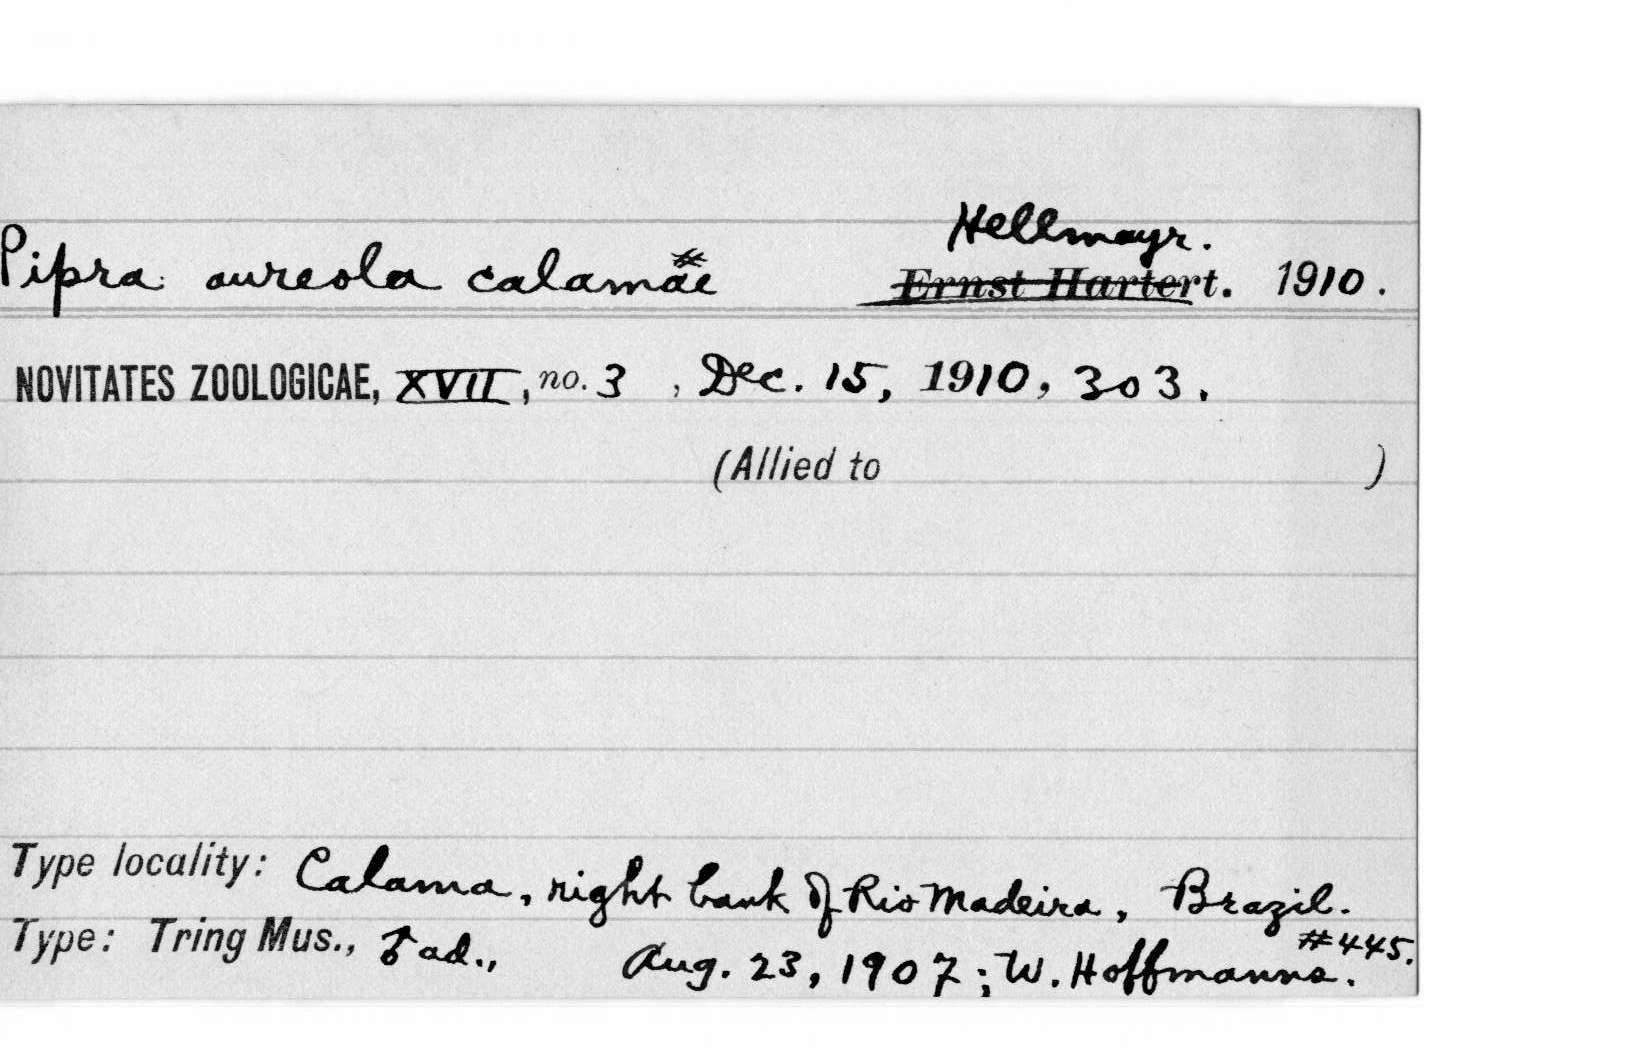 Hellmayr.
Pipra aureola calamae # Ernst Hartert. 1910.
NOVITATES ZOOLOGICAE, XVII, no. 3 , Dec. 15, 1910, 303.
(Allied to )
Type locality: Calama, right bank of Rio Madeira, Brazil.
#445.
Type: Tring Mus., ♂ ad., Aug. 23, 1907; W. Hoffmanns.